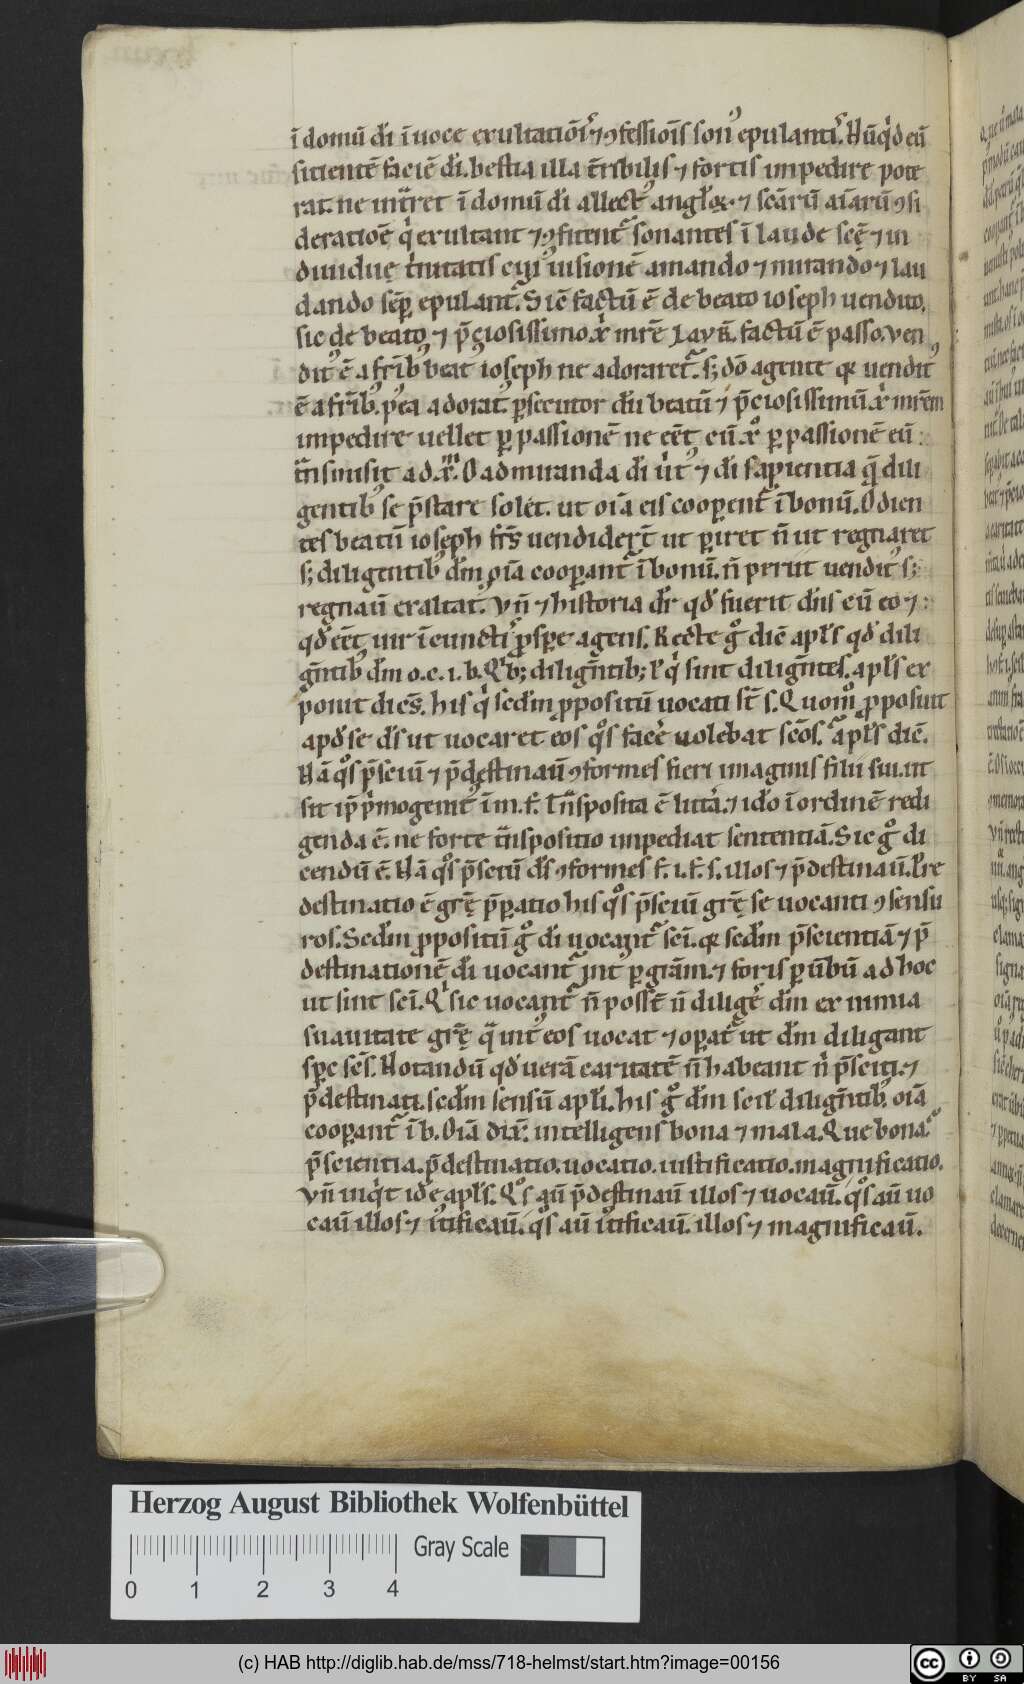 ī domū dī ī uoce exultatiōīs ⁊ ꝯfessiōīs son᷒ epulantis. Nūqͥd eū
sitientē faciē dī. bestia illa tribilis ⁊ fortis impedire pote
rat. ne intret ī domū dī allect᷒ anglꝭ ⁊ scārū aīarū ꝯsi
deratiōē qͥ exultant ⁊ ꝯfitent᷑ sonantes ī laude scē ⁊ in
diuiduę tnitatis cui᷒ uisionē amando ⁊ mirando ⁊ lau
dando semꝑ epulant᷑. Sic factū ē de beato ioseph uendito.
sic de beato. ⁊ p̄ciosissimo xͥ mrē Lauꝶ. factū ē passo. Uen
dit᷒ ē a frīb᷒ beat᷒ ioseph ne adoraret᷑. s; dō agente qꝫ uendit᷒
ē a frīb᷒. p᷒ea adorat᷒. ꝑsecutor dū beatū ⁊ p̄ciosissimū xͥ mrēm
impedire uellet ꝑ passionē ne eēt cū xͦ. ꝑ passionē eū
tnsmisit ad xͫ. O admiranda dī uͥt᷒ ⁊ dī sapientia q̄ dili
gentib᷒ se p̄stare solet. ut oīa eis cooꝑent᷑ ī bonū. Odien
tes beatū ioseph frs̄ uendiderꝯt ut ꝑiret n̄ ut regnaret
s; diligentib᷒ dm̄ oīa cooꝑant᷑ ī bonū. n̄ periit uendit᷒ s;
regnauit exaltat᷒. Uñ ⁊ historia dr̄ qđ fuerit dn̄s cū eo ⁊
qđ eēt uir ī cunctis ꝓspere agens. Recte gͦ diē apl̄s qđ dili
gn̄tib᷒ dm̄ o. c. i. b. Qͥb; dilign̄tib; l᷑ qͥ sint dilign̄tes. apl̄s ex
ponit diēs. his qͥ sedm̄ ꝓpositū uocati st̄ s. Quomͦ ꝓposuit
apđ se dī ut uocaret eos qͦs facͤe uolebat scōs. apl̄s diē.
Nā qͦs p̄sciuī ⁊ p̄destinauī ꝯformes fieri imaginis filii sui. ut
sit ip̄ pͥmogenit᷒ ī m. f. Tn̄sposita ē litta. ⁊ idͦo ī ordinē redi
genda ē. ne forte tn̄spositio impediat sententiā. Sic gͦ di
cendū ē. Nā qͦs p̄sciuī dī ꝯformes f. i. f. s. illos ⁊ p̄destinauī. Pre
destinatio ē grē p̄paratio his qͦs p̄sciuī grē se uocanti ꝯsensu
ros. Sedm̄ ꝓpositū gͦ dī uocant᷑ scī. qꝫ sedm̄ p̄scientiā ⁊ p̄
destinationē dī uocant᷑ int᷒ ꝑ grām. ⁊ foris ꝑ ūbū ad hoc
ut sint scī. Qͥ sic uocant᷑ n̄ possē n̄ diligͤe dm̄ ex nimia
suauitate grē qͣ int᷒ eos uocat ⁊ oꝑat᷑ ut dm̄ diligant
spc sc̄s. Notandū qđ uerā caritatē n̄ habeant nͥ p̄sciti ⁊
p̄destinati. sedm̄ sensū apl̄i. his gͦ dm̄ scil̄ dilign̄tib᷒. oīa
cooꝑant᷑ ī b. Oīa dix̄. intelligens bona ⁊ mala. Que bona
p̄scientia. p̄destinatio. uocatio. iustificatio. magnificatio.
Uñ inqͥt idē apl̄s. Qͦs aū p̄destinauī illos ⁊ uocauī. qͦs aū uo
cauī illos ⁊ iustificauī. qͦs aū iustificauī. illos ⁊ magnificauī.
Herzog August Bibliothek Wolfenbüttel
Gray Scale
0 1 2 3 4
(c) HAB http://diglib.hab.de/mss/718-helmst/start.htm?image=00156
cc BY SA